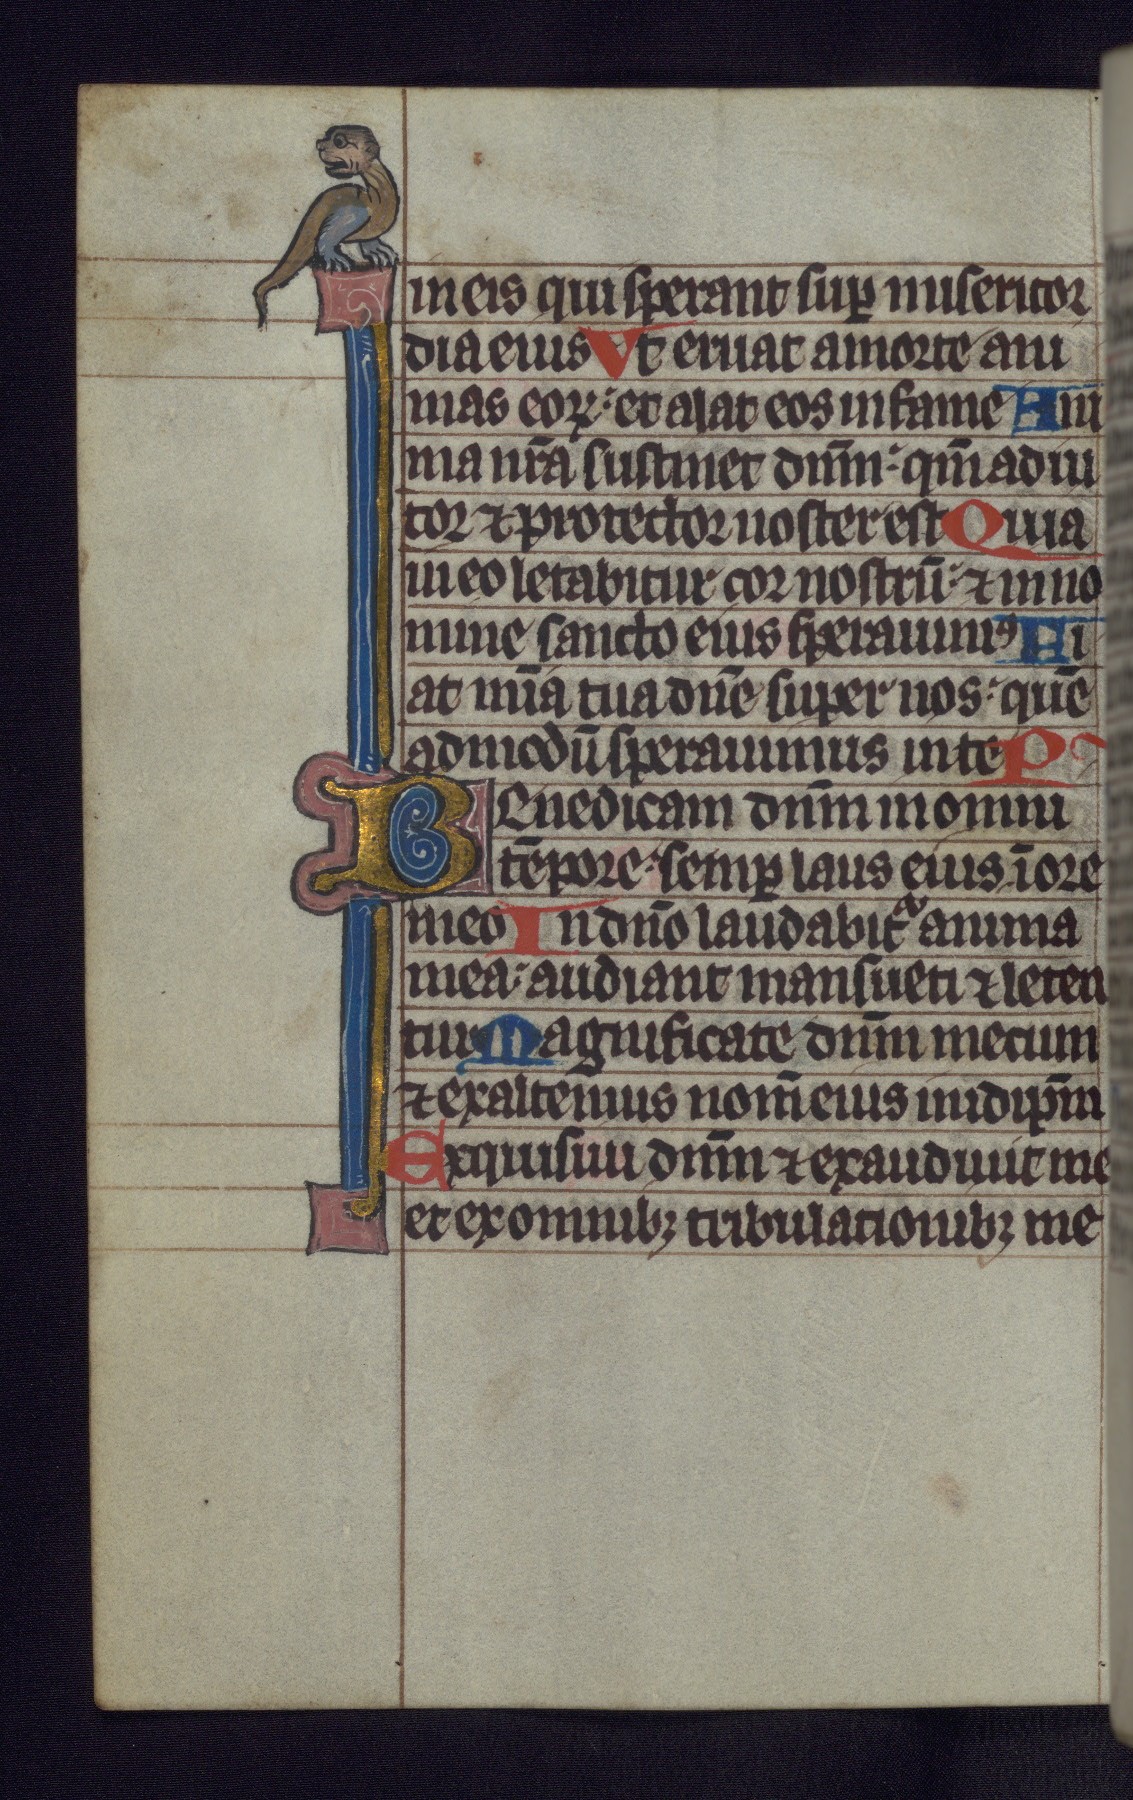 in eis qui sperant sup̱ misericor
dia eius Vt eruat a morte ani
mas eoꝝ: et alat eos in fame Ani
ma nr̄a sustinet dn̄m: qm̄ adiu
tor ⁊ protector noster est Quia
in eo letabitur cor nostrū: ⁊ in no
mine sancto eius sperauimꝰ Fi
at mīa tua dn̄e super nos: quē
admodū sperauimus in te P
BEnedicam dn̄m in omni
tēpore: semꝑ laus eius ī ore
meo In dn̄o laudabitᷓ anima
mea: audiant mansueti ⁊ leten
tur Magnificate dn̄m mecum
⁊ exaltemus nom̄ eius in idip̄m
Exquisiui dn̄m ⁊ exaudiuit me
et ex omnibꝫ tribulationibꝫ me